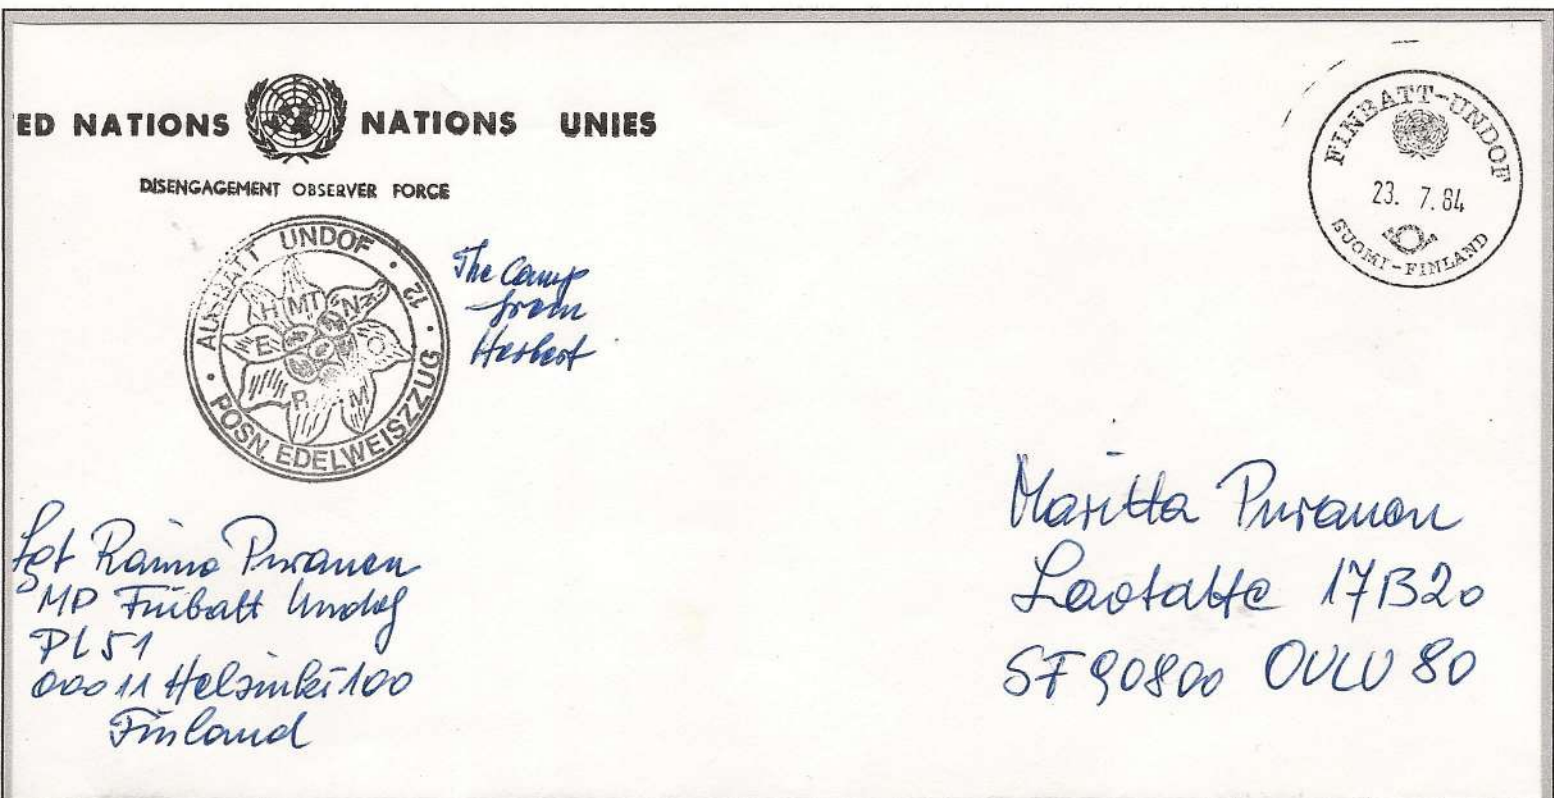 ED NATIONS NATIONS UNIES
DISENGAGEMENT OBSERVER FORCE
AUSBATT UNDOF · 12 ·
POSN. EDELWEISZZUG
HMT N
E O
R M
The Camp
from
Herbert
FINBATT-UNDOF
23. 7. 84
SUOMI-FINLAND
Sgt Raimo Puranen
MP Finbatt Undof
PL 51
00011 Helsinki 100
Finland
Maritta Puranen
17B20
SF 90800 OULU 80